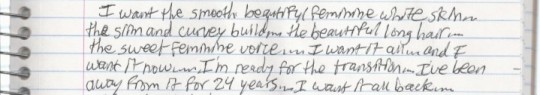 I want the smooth beautiful feminine white skin...
the slim and curvey build... the beautiful long hair...
the sweet feminine voice... I want it all... and I
want it now... I'm ready for the transition... I've been
away from it for 24 years... I want it all back...